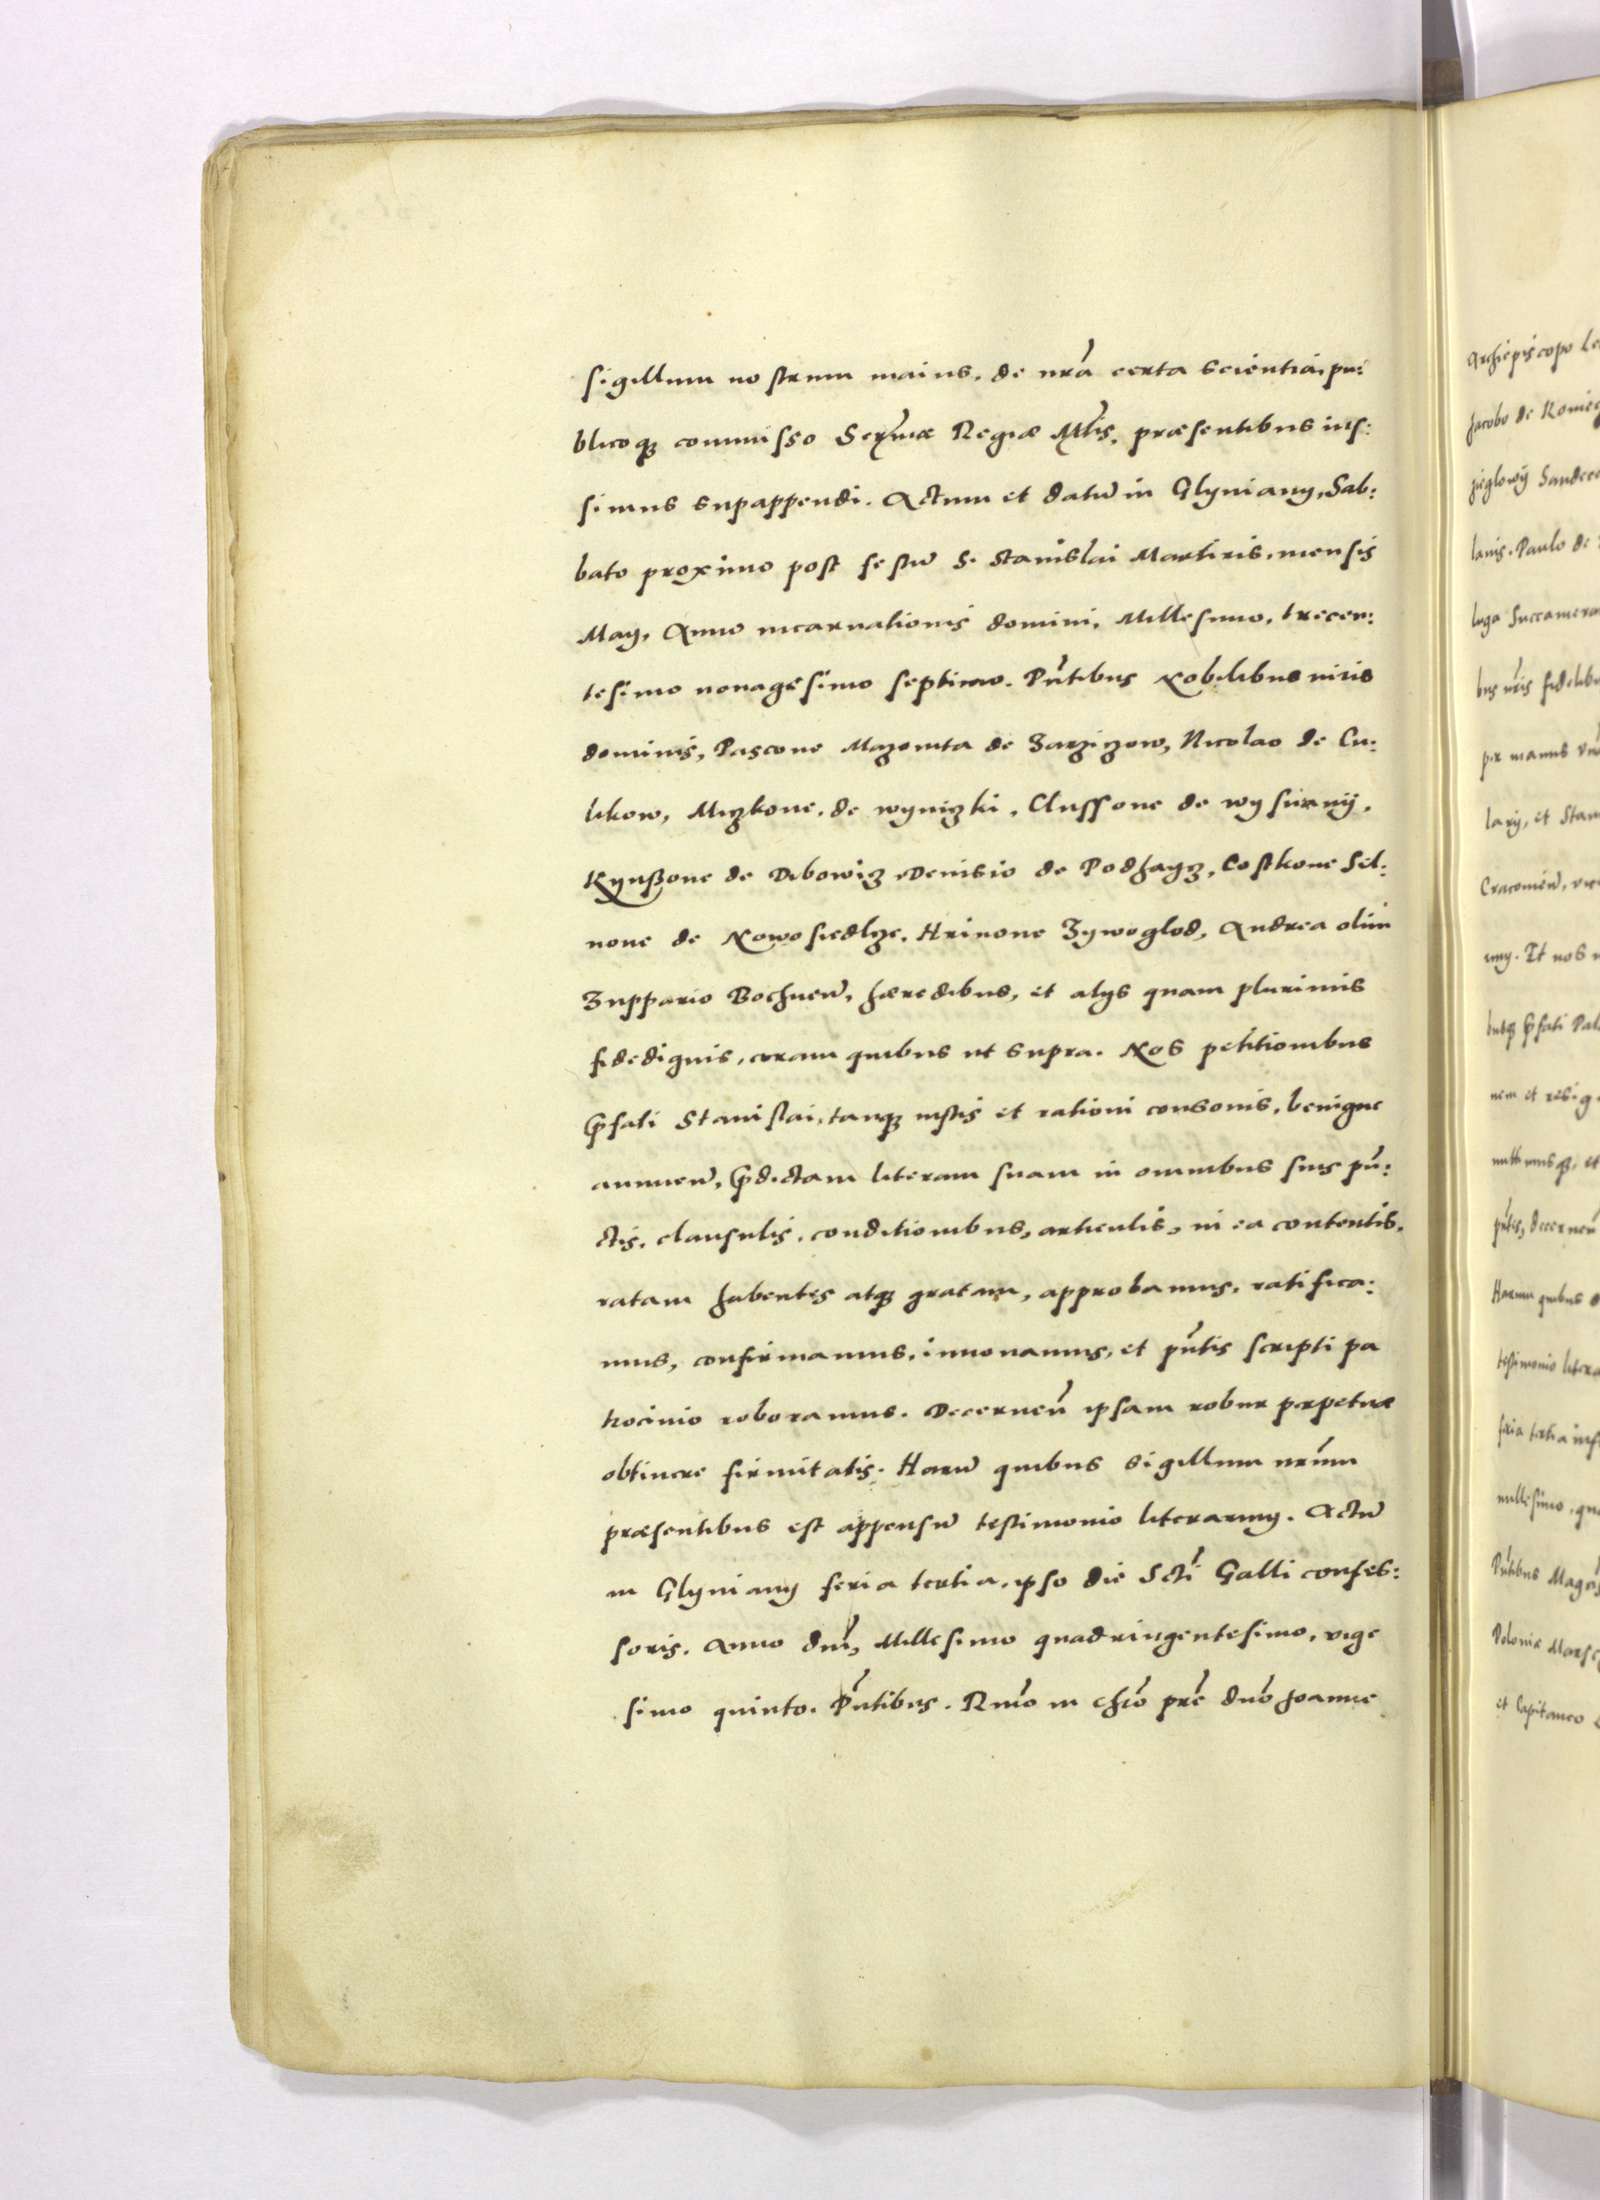 sigillum nostrum maius, de nrã certa scientia, pu:
blicoq3 commisso Serx̃mæ Regiæ Mtĩs, præsentibus ius:
simus supappendi. Actum et datũ in Glyniany, Sab:
bato proximo post festũ S. Stanislai Martiris, mensis
Maÿ, Anno incarnationis domini, Millesimo, trecen:
tesimo nonagesimo septimo. Pñtibus Nobilibus viris
dominis, Pascone Mazowita de Zarzizow, Nicolao de Cu:
likow, Miczkone, de wyniczki, Clussone de wysũanÿ,
Kynßone de Dibowiz Denisio de Podhayz, Costkone Sel:
none de Nowosiedlze, Hrinone Zywoglod, Andrea olim
Zuppario Bochneñ, hæredibus, et alÿs quam plurimis
fidedignis, coram quibus ut supra. Nos petitionibus
p̃fati Stanislai, tanq3 iustis et rationi consonis, benigne
annueñ, p̃dictam literam suam in omnibus suis pũ:
ctis, clausulis, conditionibus, articulis, in ea contentis,
ratam habentes atq3 gratam, approbamus, ratifica:
mus, confirmamus, innouamus, et pñtis scripti pa
trocinio roboramus. Decerneñ ipsam robur perpetuæ
obtinere firmitatis. Harũ quibus sigillum nrũm
præsentibus est appensũ testimonio literarum. Actũ
in Glyniany feria tertia, ipso die Scti Galli confes:
soris. Anno dnĩ, Millesimo quadringentesimo, vige
simo quinto. Pñtibus. Rmõ in chrõ prẽ dnõ Joanne
Archiepiscopo Le
Jacobo de Koniec
lanis. Paulo de
bus nr̃is fidelibu
per manus
larÿ, et Stan
Cracovieñ, vic
Et nos
p̃fati Pal
nem et resig
pñtes, decerneñ
Harum quibus
testimonio litera
feria tertia inf
millesimo, qua
Pñtibus Mag
Poloniæ Marsc
et Capitaneo